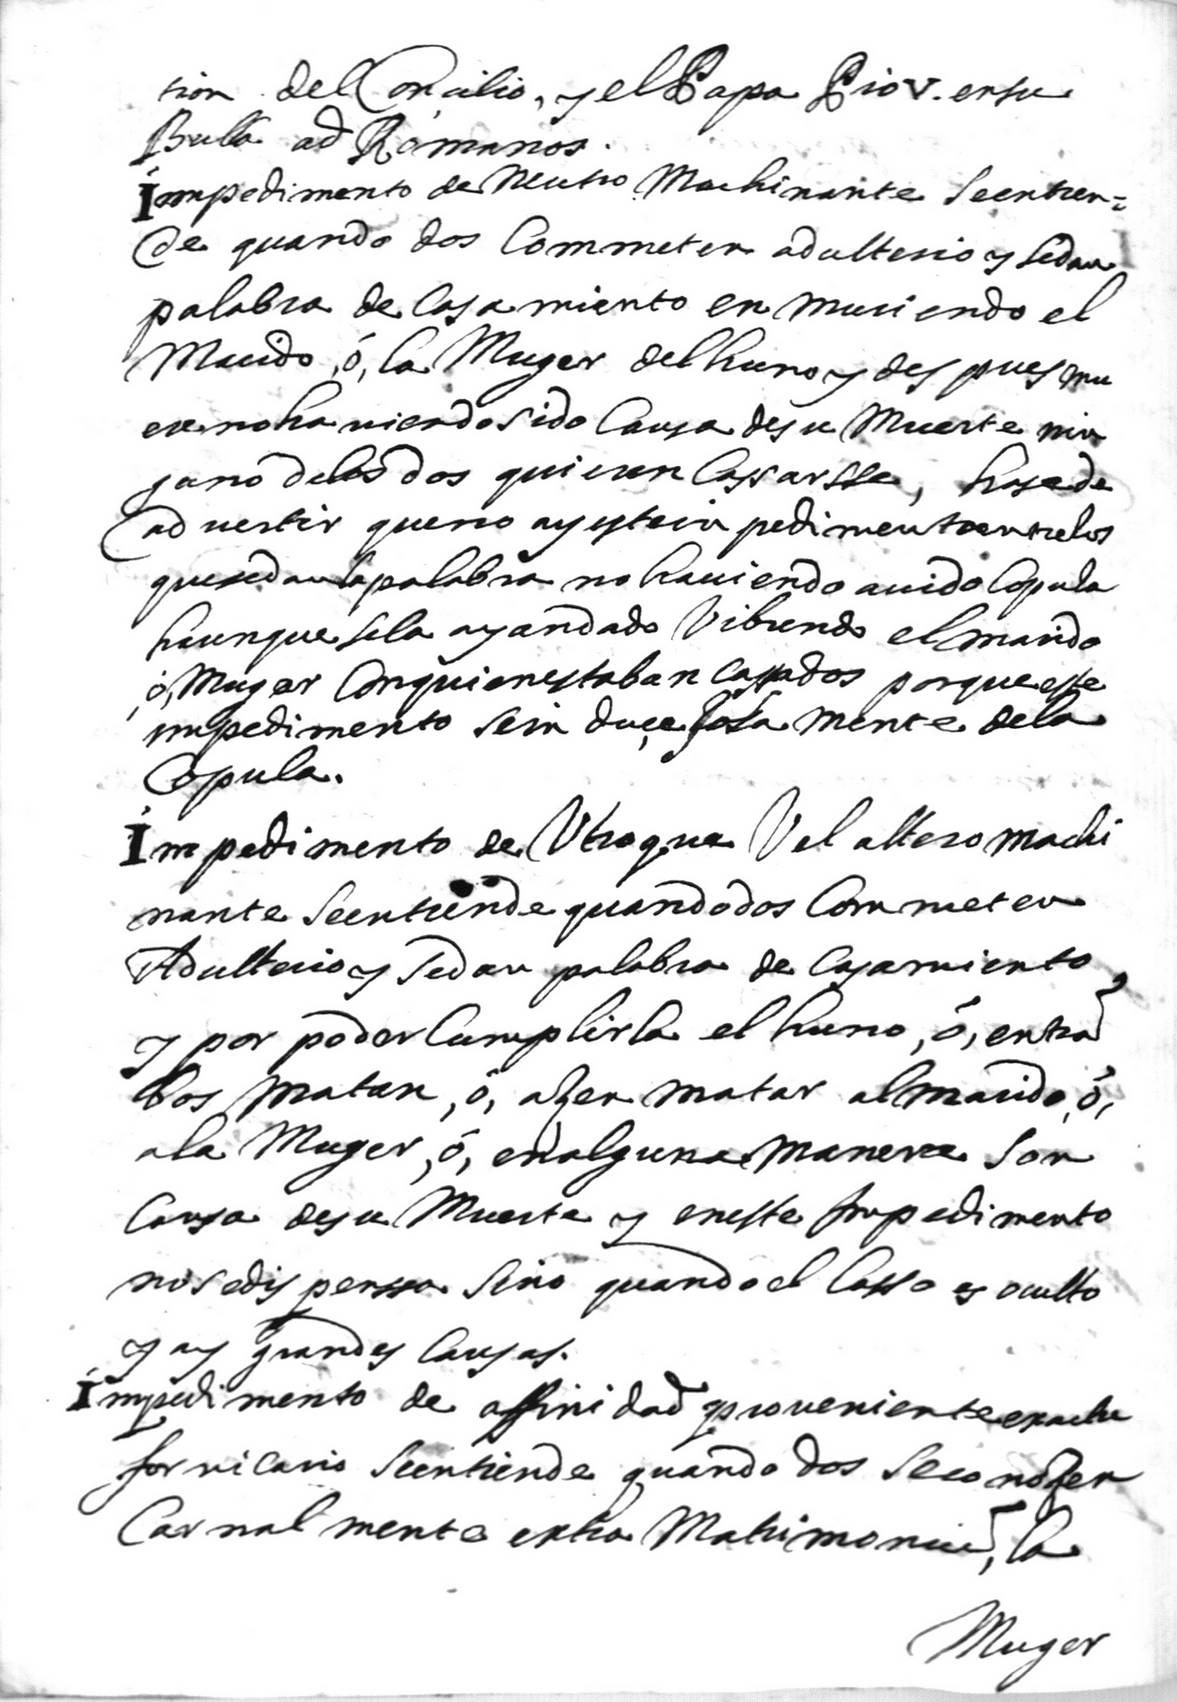 sion del Concilio, y el Papa Pio V. en su
Bulla ad Romanos.
Impedimento de Neutro Machinante se entien=
de quando dos Commeten adulterio y se dan
palabra de Casamiento en muriendo el
Marido, ó, la Muger del huno y despues mu
ere no haviendo sido Causa de su Muerte nin
guno de los dos quieren Cassarsse, hase de
advertir que no ay este inpedimento entre los
que se dan la palabra no haviendo avido Copula
haunque se la ayan dado Vibiendo el marido
ó, Muger Con quien estaban Cassados porque este
impedimento se induçe sola mente de la
Copula.
Impedimento de Utroque Vel altero machi
nante se entiende quando dos Commeten
Adulterio y se dan palabra de Casamiento
y por poder Cumplirla el huno, ó, entrã
bos matan, ó, azen matar al marido, ó,
a la Muger, ó, en alguna manera son
Causa de su Muerte y en este Impedimento
no se dispenssa sino quando el Casso es oculto
y ay grandes Causas.
Impedimento de affinidad proveniente ex actu
fornicario se entiende quando dos se conozen
Carnalmente extra Matrimoniũ, la
Muger